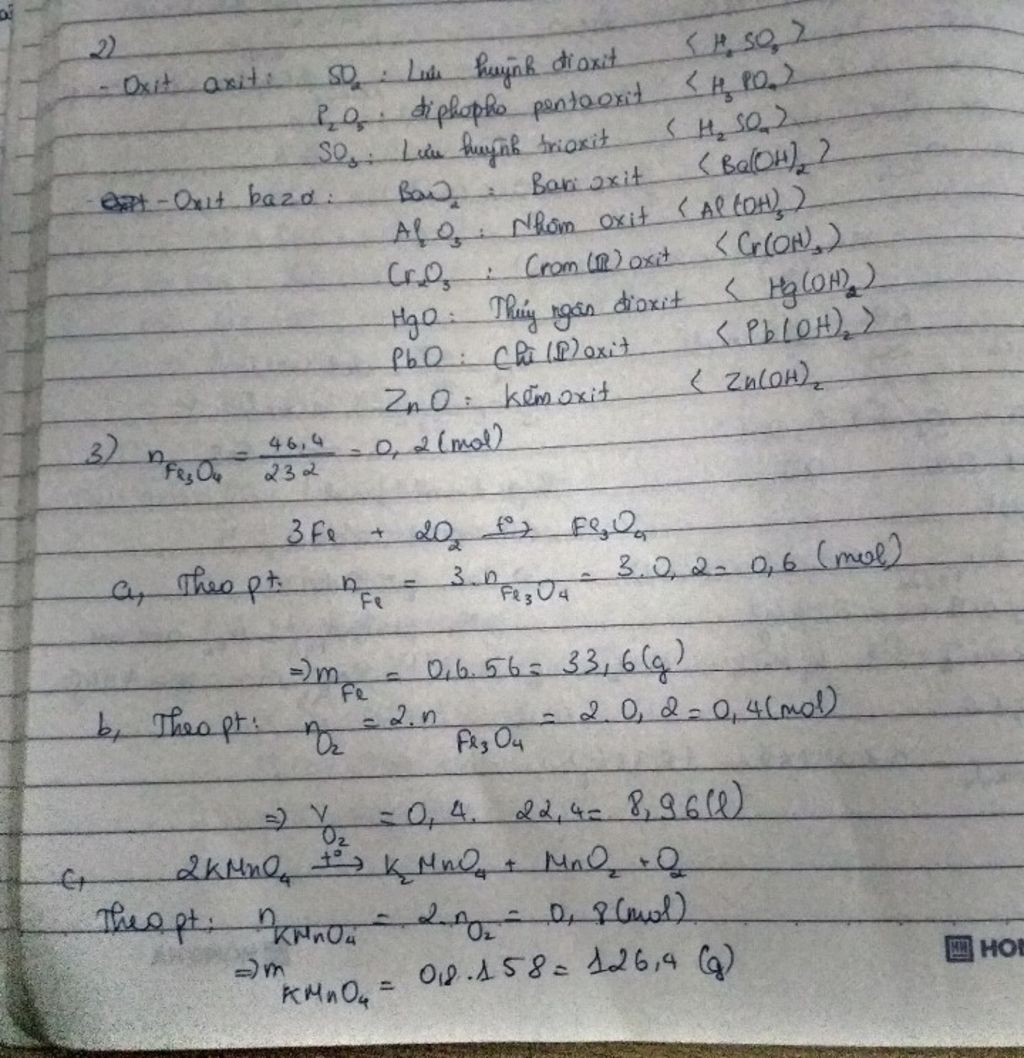 2)
- Oxit axit: SO₂ : Lưu huỳnh đioxit < H₂SO₃ >
P₂O₅ : điphopho pentaoxit < H₃PO₄ >
SO₃ : Lưu huỳnh trioxit < H₂SO₄ >
- Oxit bazơ : : Bari oxit < Ba(OH)₂ >
Al₂O₃ : Nhôm oxit < Al(OH)₃ >
Cr₂O₃ : Crom (III) oxit < Cr(OH)₃ >
HgO : Thủy ngân đioxit < Hg(OH)₂ >
PbO : Chì (II) oxit < Pb(OH)₂ >
ZnO : Kẽm oxit < Zn(OH)₂
3) n Fe₃O₄ = 46,4/232 = 0,2 (mol)
3Fe + 2O₂ t°→ Fe₃O₄
a, Theo pt: n Fe = 3.n Fe₃O₄ = 3.0,2 = 0,6 (mol)
=> m Fe = 0,6.56 = 33,6(g)
b, Theo pt: n O₂ = 2.n Fe₃O₄ = 2.0,2 = 0,4(mol)
=> V O₂ = 0,4. 22,4 = 8,96(l)
c, 2KMnO₄ t°→ K₂MnO₄ + MnO₂ + O₂
Theo pt: n KMnO₄ = 2.n O₂ = 0,8(mol)
=> m KMnO₄ = 0,8.158 = 126,4 (g)